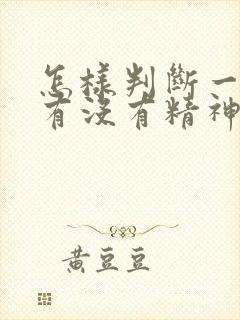 怎樣判斷一
有沒有精神
黃豆豆